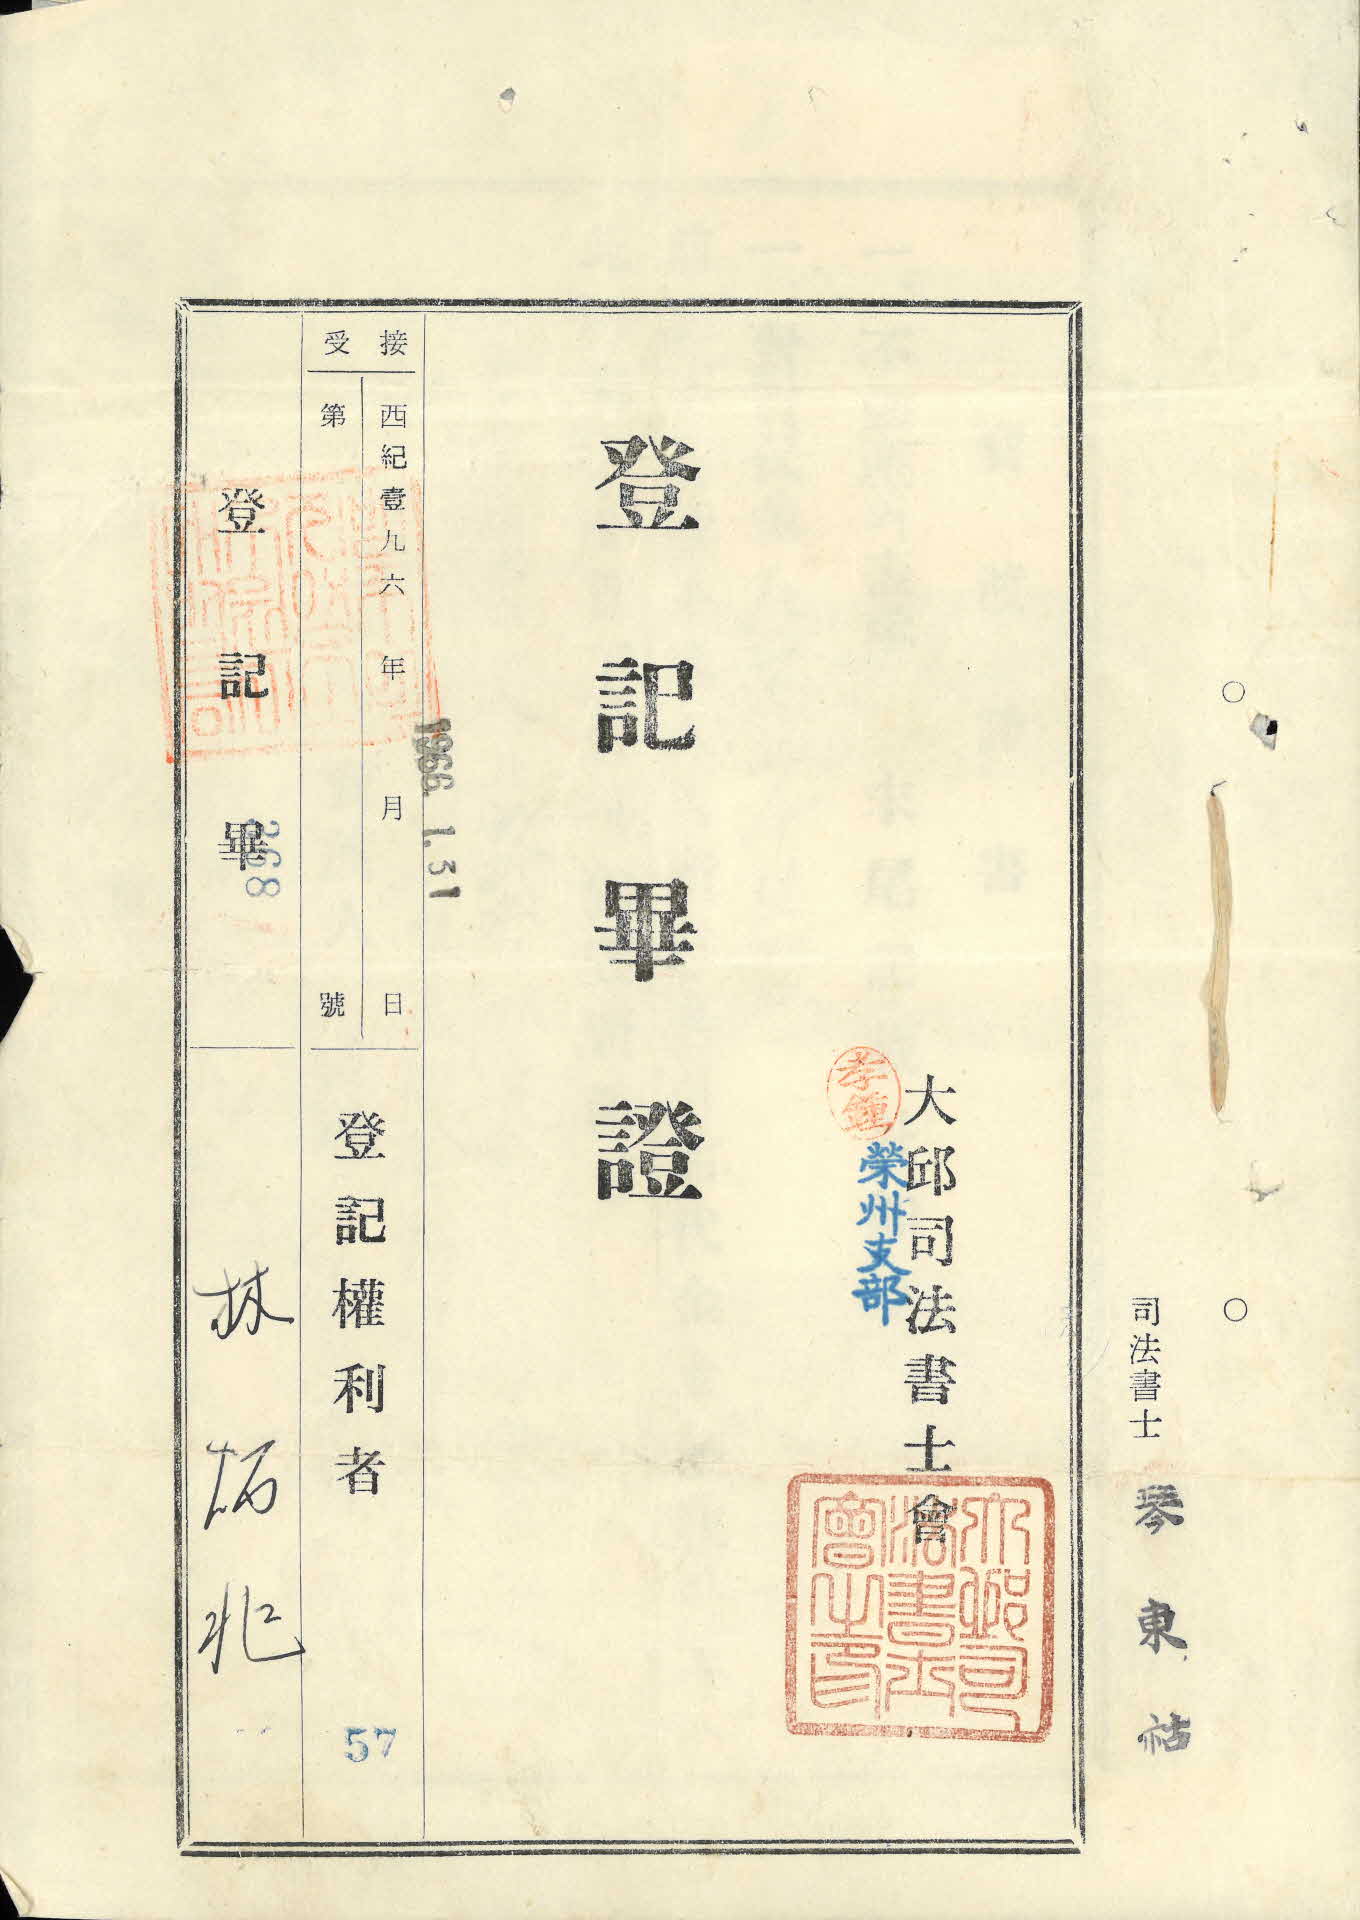 司法書士 琴東祜
大邱司法書士會
榮州支部
孝鍾
大邱司
法書士
會之印
登記畢證
接受
西紀壹九六 年 月 日
1966. 1. 31
第 號
268
登記權利者
57
登記畢
林炳兆